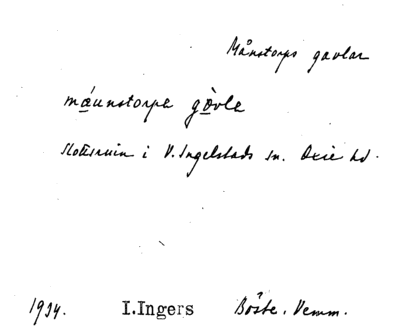 Månstorps gavlar
máunstorpe gòvle
Slottsruin i V. Ingelstads sn. Oxie hd.
1934. I.Ingers Böste, Vemm.